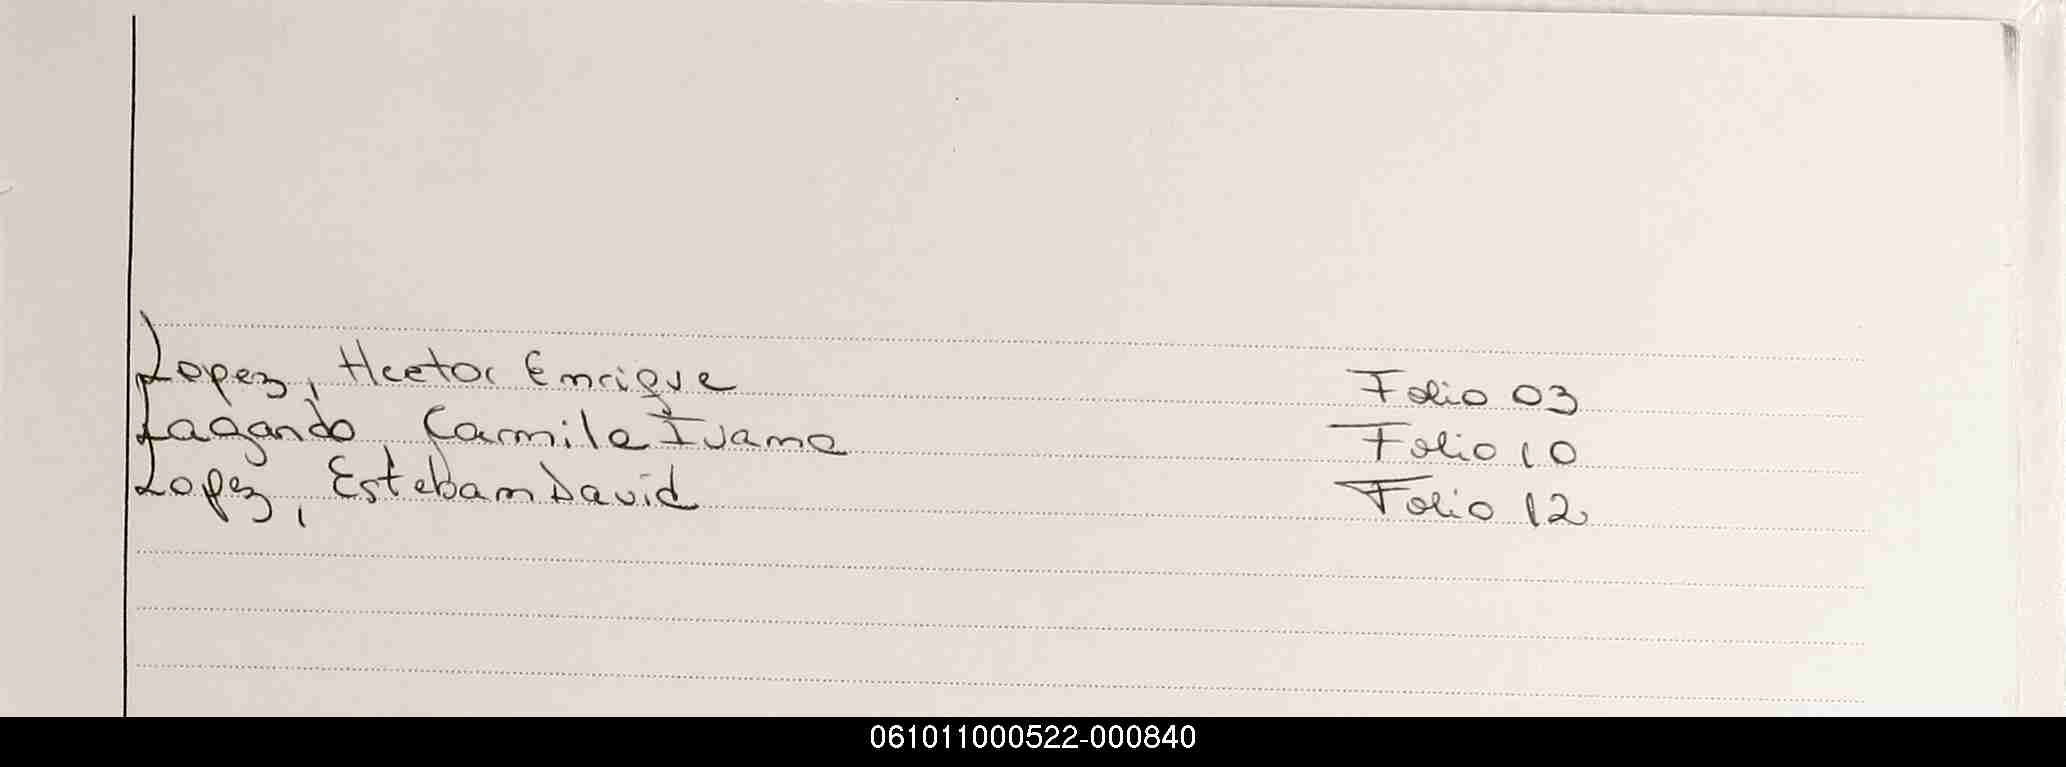 Lopez, Hector Enrique Folio 03
Lagando, Carmila Ivana Folio 10
Lopez, Esteban David Folio 12
061011000522-000840